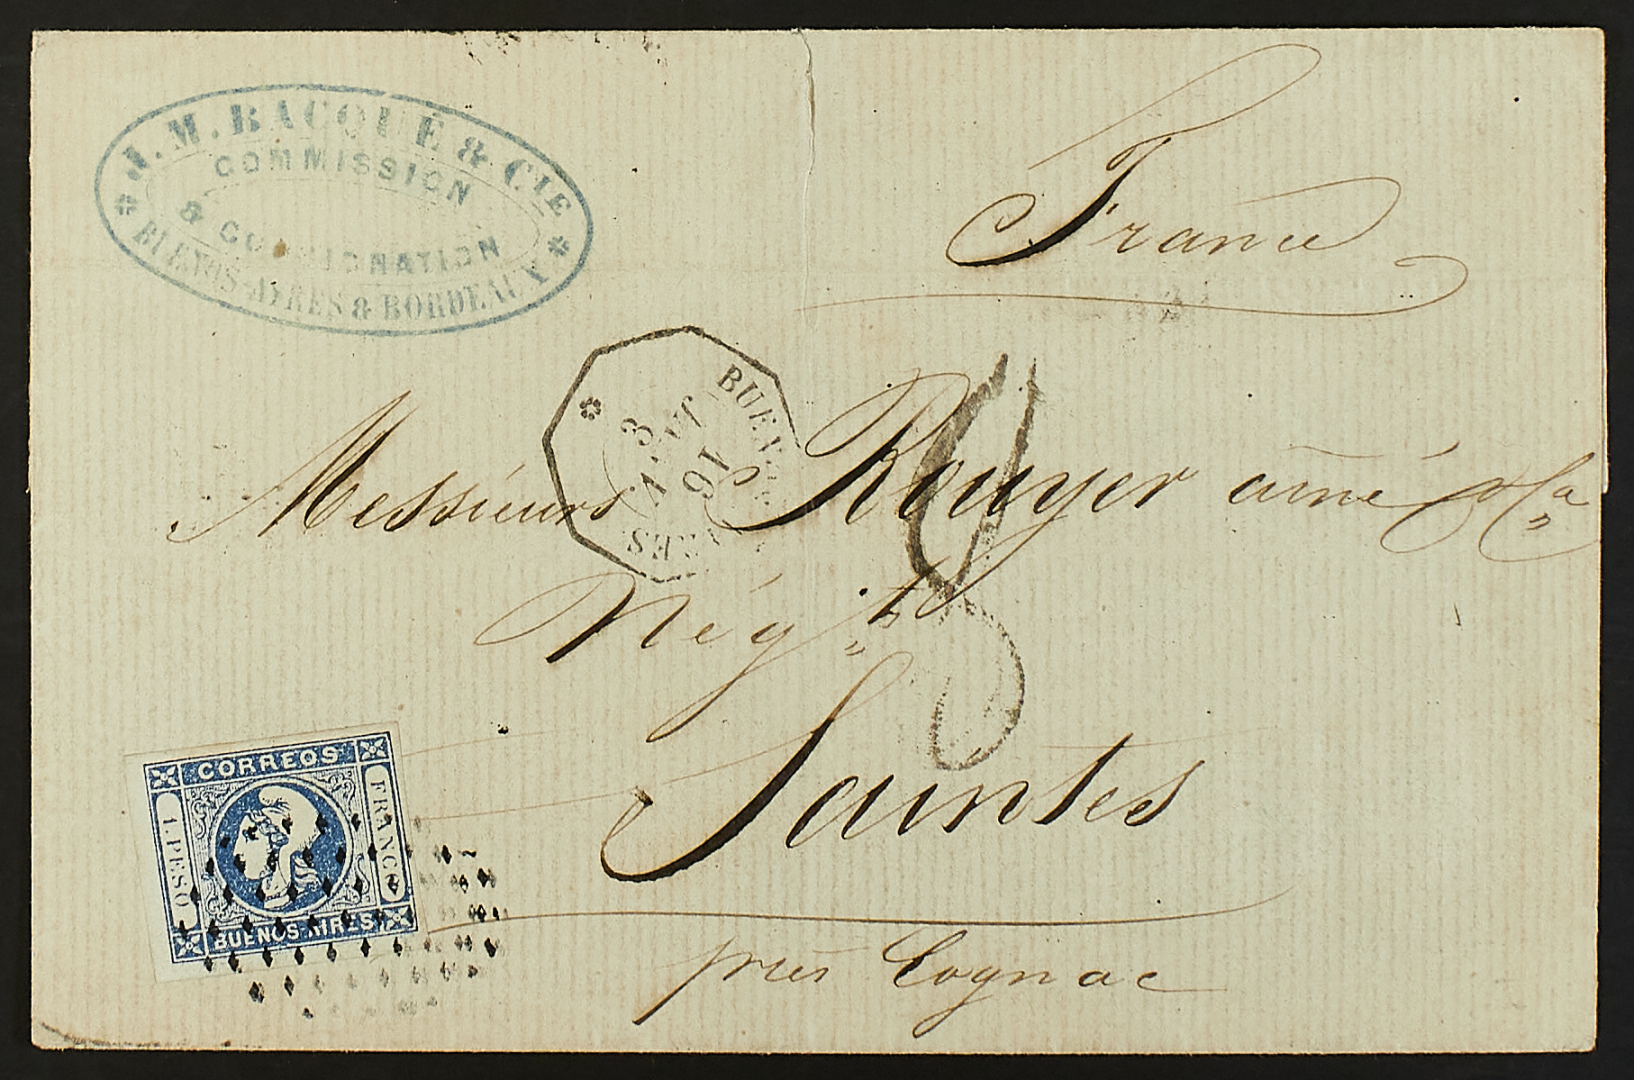 J. M. BACQUE & CIE
COMMISSION
& CONSIGNATION
BUENOS-AYRES & BORDEAUX
France
BUENOS
8
JANV
Messieurs Rouyer aîné & Ca
Négt
Saintes
près Cognac
CORREOS
1. PESO
FRANCO
BUENOS-AIRES